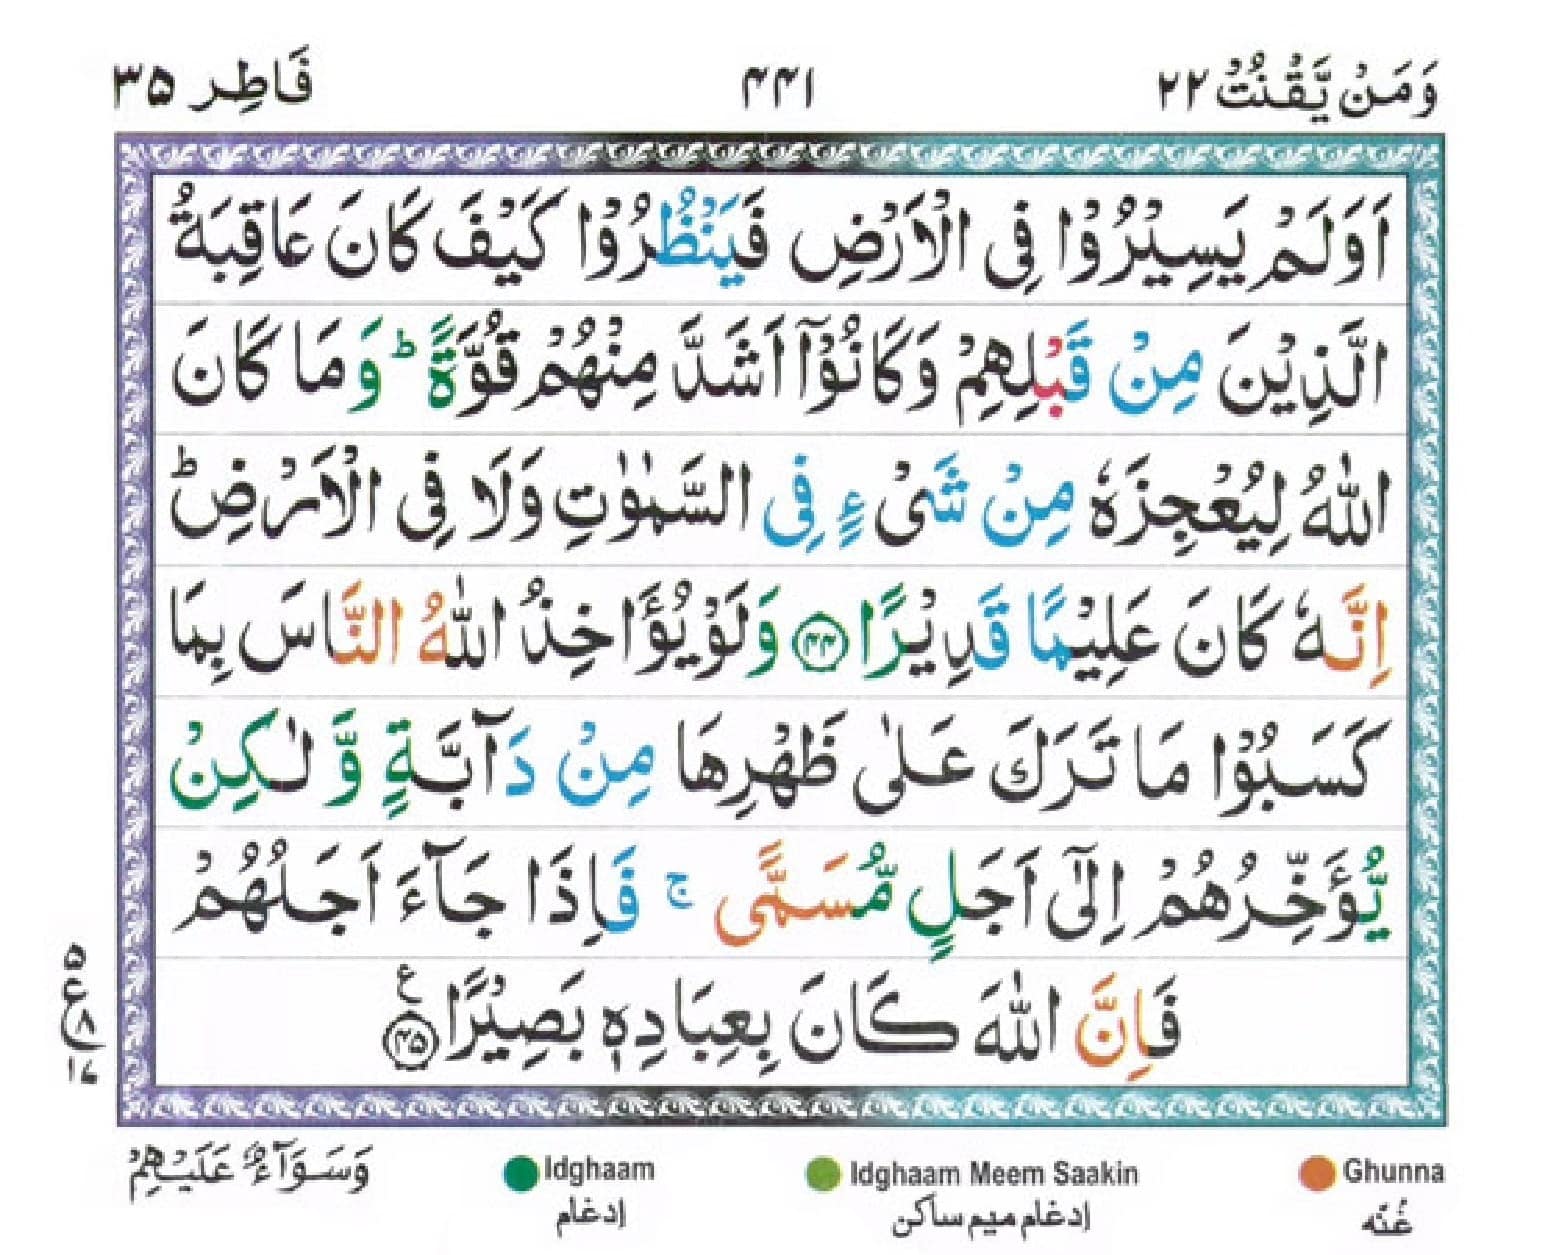 وَمَنْ يَّقْنُتْ ٢٢ ٤٤١ فَاطِر ٣٥
اَوَلَمْ يَسِيْرُوْا فِى الْاَرْضِ فَيَنْظُرُوْا كَيْفَ كَانَ عَاقِبَةُ
الَّذِيْنَ مِنْ قَبْلِهِمْ وَكَانُوْۤا اَشَدَّ مِنْهُمْ قُوَّةً ؕ وَمَا كَانَ
اللّٰهُ لِيُعْجِزَهٗ مِنْ شَىْءٍ فِى السَّمٰوٰتِ وَلَا فِى الْاَرْضِ ؕ
اِنَّهٗ كَانَ عَلِيْمًا قَدِيْرًا ۝٤٤ وَلَوْ يُؤَاخِذُ اللّٰهُ النَّاسَ بِمَا
كَسَبُوْا مَا تَرَكَ عَلٰى ظَهْرِهَا مِنْ دَآبَّةٍ وَّ لٰكِنْ
يُّؤَخِّرُهُمْ اِلٰٓى اَجَلٍ مُّسَمًّى ۚ فَاِذَا جَآءَ اَجَلُهُمْ
فَاِنَّ اللّٰهَ كَانَ بِعِبَادِهٖ بَصِيْرًا ۝٤٥ ع
٥
ع
٨
١٧
Ghunna Idghaam Meem Saakin Idghaam وَسَوَآءٌ عَلَيْهِمْ
غُنّه إدغام ميم ساكن إدغام